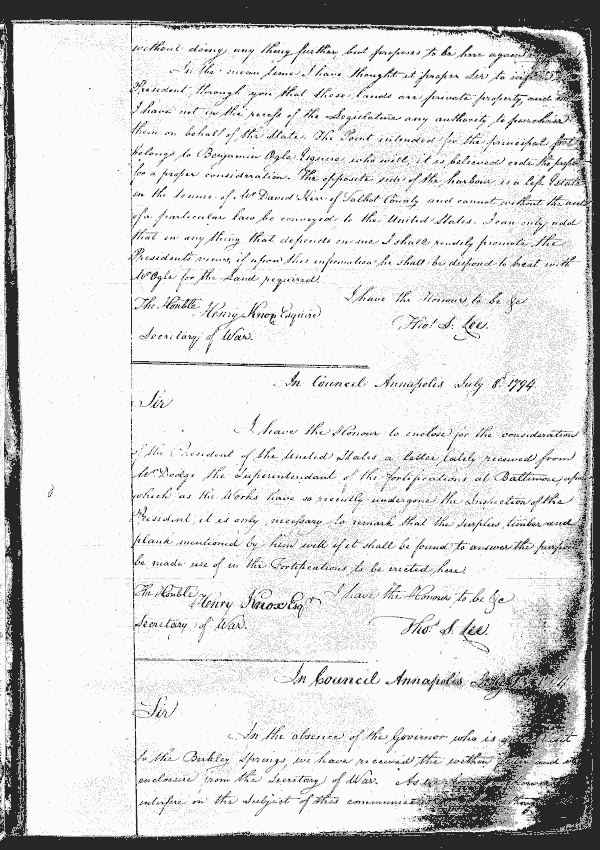 without doing any thing further but proposes to be here again
In the mean time I have thought it proper Sir to inform the
President through you that these lands are private property and
I have not in the recess of the Legislature any authority to purchase
them on behalf of the State. The Point intended for the principal fort
belongs to Benjamin Ogle Esquire who will, it is believed cede the proper
for a proper consideration. The opposite side of the harbour is a life Estate
in the tenure of Mr David Kerr of Talbot County and cannot without the aid
of a particular law be conveyed to the United States. I can only add
that in any thing that depends on me I shall readily promote the
Presidents views, if upon this information he shall be disposed to treat with
Mr Ogle for the Land required.
I have the Honour to be &c
The Honble Henry Knox Esquire
Thos. S. Lee.
Secretary of War.
In Council Annapolis July 8th 1794
Sir
I have the Honour to enclose for the consideration
of the President of the United States a letter lately received from
Mr Dodge the Superintendant of the fortifications at Baltimore, upon
which as the Works have so recently undergone the Inspection of the
President, it is only necessary to remark that the surplus timber and
plank mentioned by him will if it shall be found to answer the purpose
be made use of in the Fortifications to be erected here.
I have the Honour to be &c
The Honble Henry Knox Esqr
Secretary of War.
Thos. S. Lee.
In Council Annapolis
Sir
In the absence of the Governor who is
to the Berkley Springs, we have received the within
enclosure from the Secretary of War. As we
interfere on the subject of this